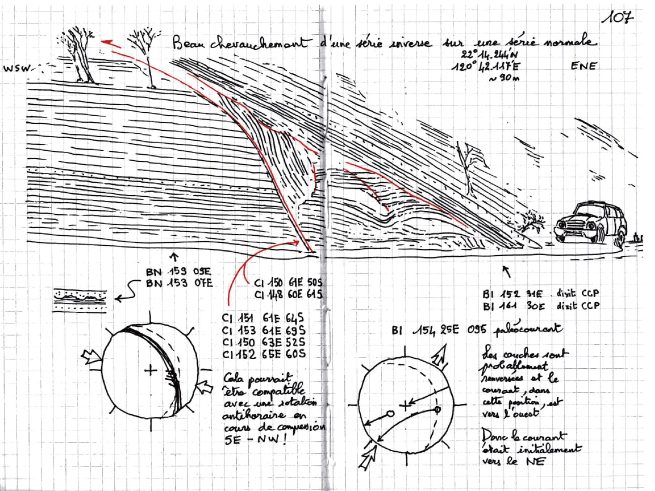 107
Beau chevauchement d'une série inverse sur une série normale
22° 14.244'N
120° 42.117'E
~ 90m
WSW
ENE
BN 159 09E
BN 153 07E
CI 150 61E 50S
CI 148 60E 61S
CI 151 61E 64S
CI 153 61E 69S
CI 150 63E 52S
CI 152 65E 60S
Cela pourrait
être compatible
avec une rotation
antihoraire en
cours de compression
SE - NW !
BI 152 31E dixit CGP
BI 161 30E dixit CGP
BI 154 25E 095 paléocourant
Les couches sont
probablement
renversées et le
courant, dans
cette position, est
vers l'ouest
Donc le courant
était initialement
vers le NE